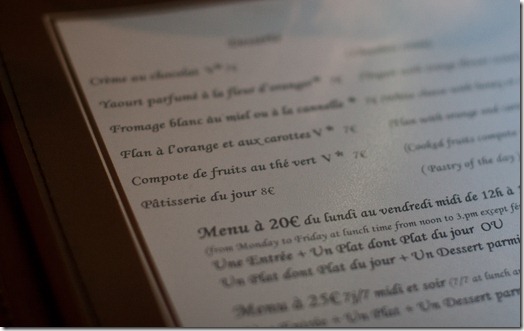 Desserts
Crème au chocolat V* 7€
Yaourt parfumé à la fleur d'oranger* 7€
Fromage blanc au miel ou à la cannelle * 7€
Flan à l'orange et aux carottes V * 7€ (Flan with orange and
Compote de fruits au thé vert V * 7€ (Cooked fruits compote
Pâtisserie du jour 8€ (Pastry of the day
Menu à 20€ du lundi au vendredi midi de 12h à
(from Monday to Friday at lunch time from noon to 3.pm except
Une Entrée + Un Plat dont Plat du jour OU
Un Plat dont Plat du jour + Un Dessert parmi
Menu à 25€ 7j/7 midi et soir (7/7 at lunch
Entrée + Un Plat dont
Dessert parm